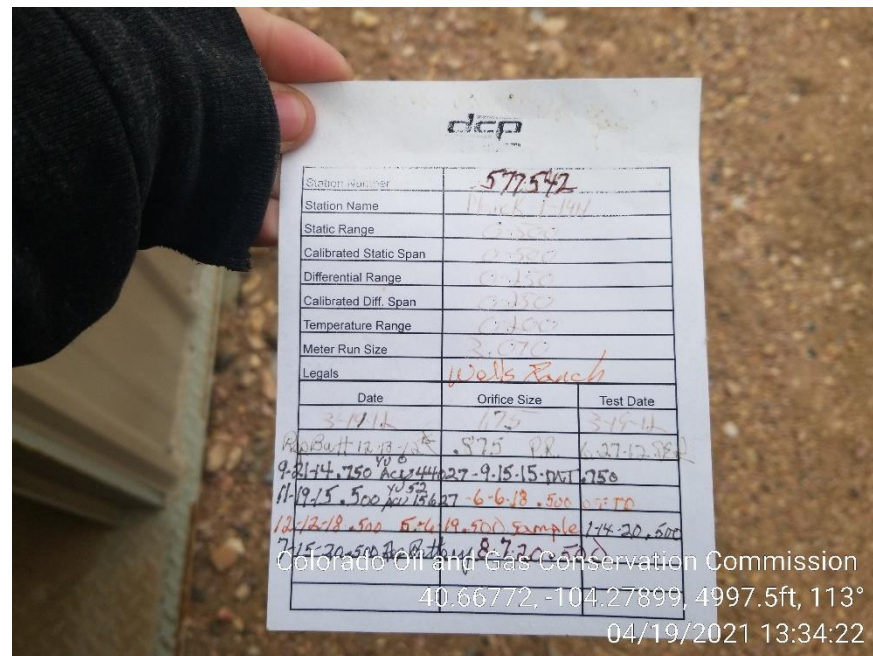 dcp
Station Number 577542
Station Name 1-14H
Static Range 0-500
Calibrated Static Span 0-500
Differential Range 0-250
Calibrated Diff. Span 0-250
Temperature Range 0-200
Meter Run Size 3.070
Legals Wells Ranch
Date Orifice Size Test Date
3-19-12 1.75 3-19-12
12-13-12 .875 P.R. 6-27-12
9-21-14 .750 44027 - 9-15-15 .750
11-19-15 .500 15627 - 6-6-18 .500
12-12-18 .500 5-6-19 .500 Sample 1-14-20 .500
7-15-20 .500 8-7-20 .500
Colorado Oil and Gas Conservation Commission
40.66772, -104.27899, 4997.5ft, 113°
04/19/2021 13:34:22